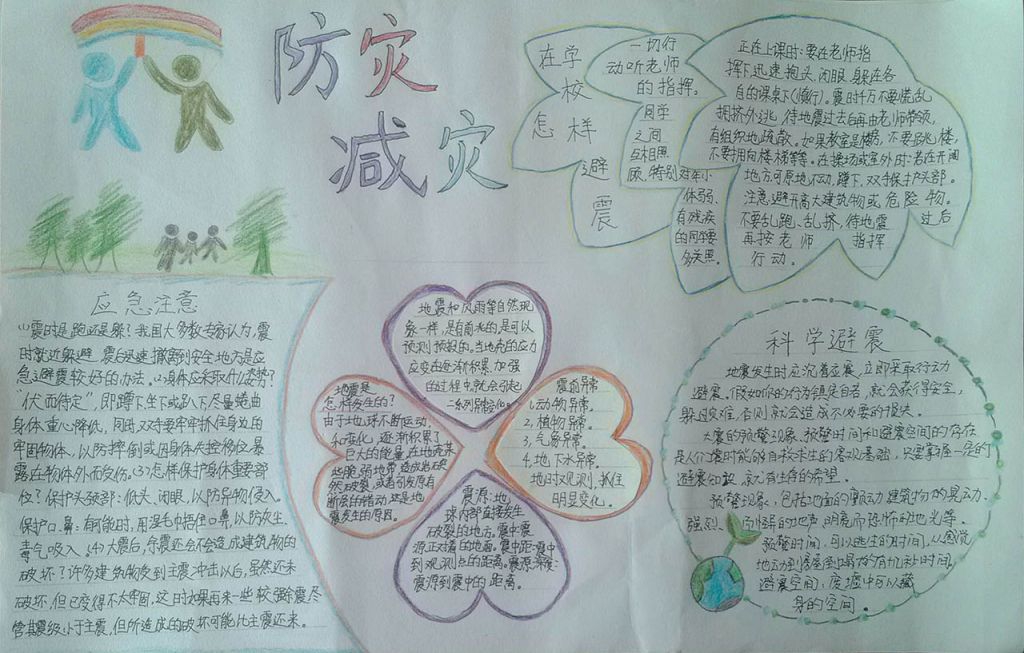 防灾
减灾
在学
校
怎样
避
震
一切行
动听老师
的指挥。
同学
之间
互相照
顾,特别对年小
体弱、
有残疾
的同学要
多关照。
正在上课时:要在老师指
挥下迅速抱头、闭眼、躲在各
自的课桌下(旁)。震时千万不要慌乱
拥挤外逃,待地震过去后再由老师带领,
有组织地疏散。如果教室是楼房,不要跳楼,
不要拥向楼梯等等。在操场或室外时:若在开阔
地方可原地不动,蹲下,双手保护头部。
注意避开高大建筑物或危险物。
不要乱跑、乱挤,待地震过后
再按老师指挥
行动。
应急注意
(1)震时是跑还是躲?我国大多数专家认为,震
时就近躲避,震后迅速撤离到安全地方是应
急避震较好的办法。(2)身体应采取什么姿势?
“伏而待定”,即蹲下坐下或趴下,尽量蜷曲
身体,重心降低,同时双手要牢牢抓住身边的
牢固物体,以防摔倒或因身体失控移位,暴
露在物体外而受伤。(3)怎样保护身体重要部
位?保护头颈部:低头、闭眼,以防异物侵入。
保护口、鼻:有可能时,用湿毛巾捂住口鼻,以防灰尘、
毒气吸入。(4)大震后,余震还会不会造成建筑物的
破坏?许多建筑物受到主震冲击以后,虽然还未
破坏,但已变得不太牢固,这时如果再来一些较强余震,尽
管其震级小于主震,但所造成的破坏可能比主震还来。
地震和风雨等自然现
象一样,是有前兆的,是可以
预测预报的。当地壳的应力
应变在逐渐积累、加强
的过程中,就会引起
一系列异常变化。
地震是
怎样发生的?
由于地球不断运动
和变化,逐渐积累了
巨大的能量,在地壳某
些脆弱地带,造成岩层突
然破裂,或者引发原有
断层的错动,这就是地
震发生的原因。
震前异常
1.动物异常。
2.植物异常。
3.气象异常。
4.地下水异常。
明显变化。
震源:地
球内部直接发生
破裂的地方。震中:震
源正对着的地面。震中距:震中
到观测点的距离。震源深度:
震源到震中的距离。
科学避震
地震发生时应沉着应震,立即采取行动
避震。假如你的行为镇定自若,就会获得安全,
躲过灾难,否则就会造成不必要的损失。
大震的预警现象、预警时间和避震空间的存在
是人们震时能够自救求生的客观基础,只要掌握一定的
避震知识,就有生存的希望。
预警现象,包括地面的颤动,建筑物的晃动、
强烈而怪的地声,明亮而恐怖的地光等。
预警时间,可以逃生的时间,从感觉
地动到房屋倒塌的有几秒时间,
避震空间:废墟中可以藏
身的空间。